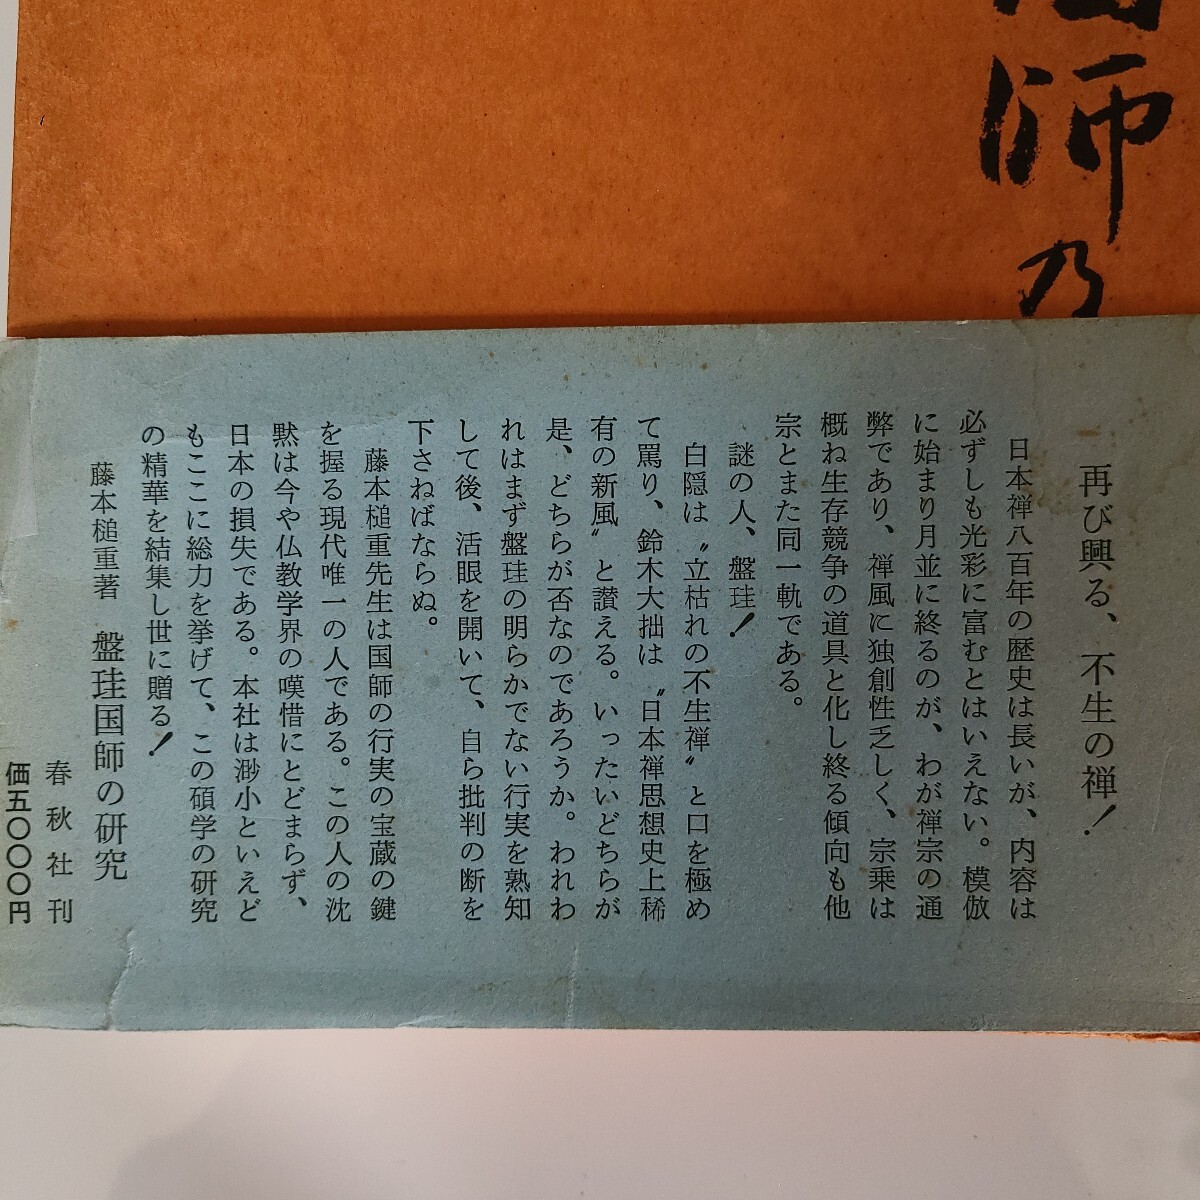 師乃
再び興る、不生の禅!
日本禅八百年の歴史は長いが、内容は
必ずしも光彩に富むとはいえない。模倣
に始まり月並に終るのが、わが禅宗の通
弊であり、禅風に独創性乏しく、宗乗は
概ね生存競争の道具と化し終る傾向も他
宗とまた同一軌である。
謎の人、盤珪!
白隠は〝立枯れの不生禅〟と口を極め
て罵り、鈴木大拙は〝日本禅思想史上稀
有の新風〟と讃える。いったいどちらが
是、どちらが否なのであろうか。われわ
れはまず盤珪の明らかでない行実を熟知
して後、活眼を開いて、自ら批判の断を
下さねばならぬ。
藤本槌重先生は国師の行実の宝蔵の鍵
を握る現代唯一の人である。この人の沈
黙は今や仏教学界の嘆惜にとどまらず、
日本の損失である。本社は渺小といえど
もここに総力を挙げて、この碩学の研究
の精華を結集し世に贈る!
藤本槌重著 盤珪国師の研究
春秋社刊
価五〇〇〇円